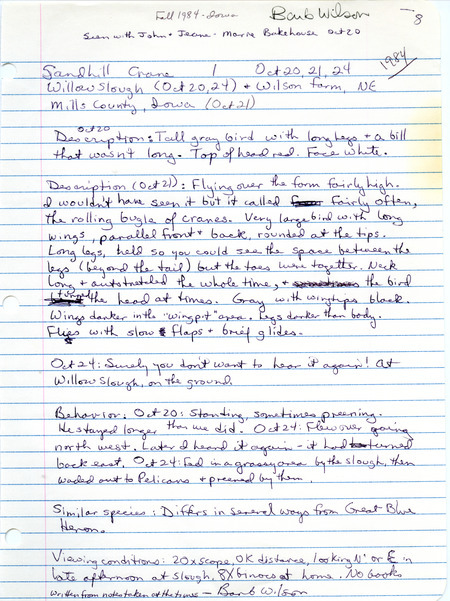 Fall 1984 - Iowa Barb Wilson 8
Seen with John + Jeane - Marie Bakehouse Oct 20
1984
Sandhill Crane 1 Oct 20, 21, 24
Willow Slough (Oct 20, 24) + Wilson farm, NE
Mills County, Iowa (Oct 21)
Oct 20
Description: Tall gray bird with long legs + a bill
that wasn't long. Top of head red. Face white.
Description (Oct 21): Flying over the farm fairly high.
I wouldn't have seen it but it called fairly often,
the rolling bugle of cranes. Very large bird with long
wings, parallel front + back, rounded at the tips.
Long legs, held so you could see the space between the
legs (beyond the tail) but the toes were together. Neck
long + outstretched the whole time, + the bird
turned the head at times. Gray with wingtips black.
Wings darker in the "wingpit" area. Legs darker than body.
Flies with slow flaps + brief glides.
Oct 24: Surely you don't want to hear it again! At
Willow Slough, on the ground.
Behavior: Oct 20: Standing, sometimes preening.
He stayed longer than we did. Oct 24: Flew over going
north west. Later I heard it again - it had turned
back east. Oct 24: Fed in a grassy area by the slough, then
waded out to Pelicans + preened by them.
Similar species: Differs in several ways from Great Blue
Heron.
Viewing conditions: 20x scope, OK distance, looking N or E in
late afternoon at slough, 8X binocs at home. No books
written from notes taken at the times - Barb Wilson